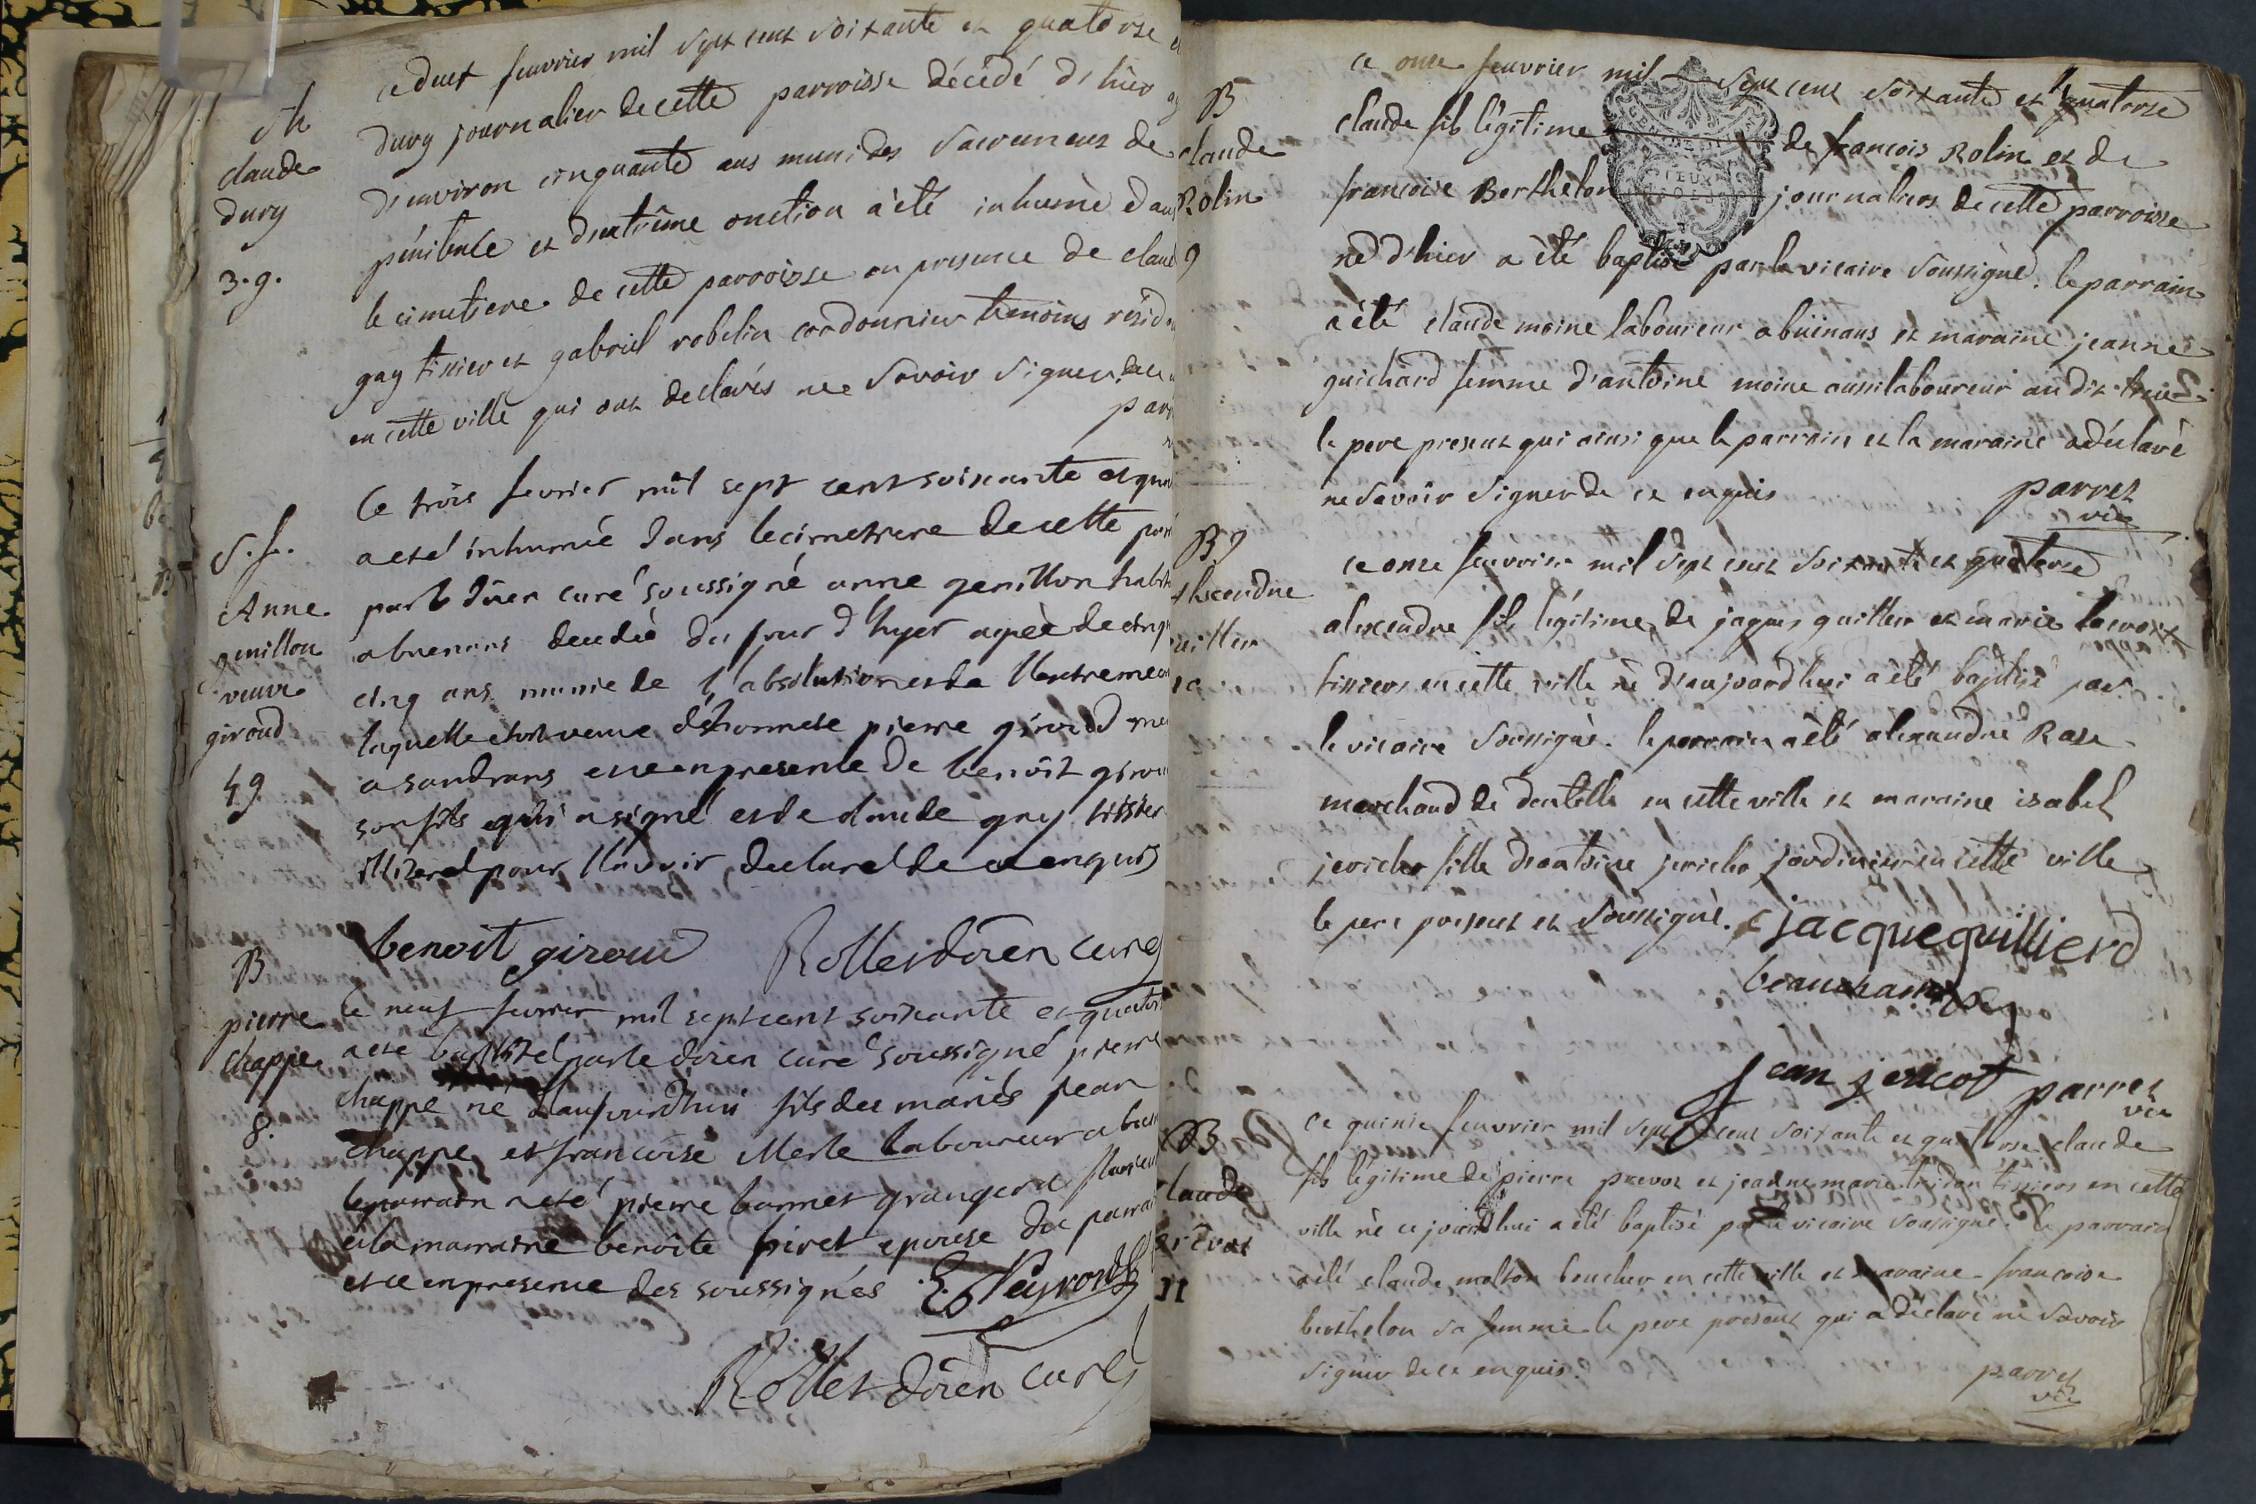 ce deux feuvrier mil sept cent soixante et quatorse
Sh
claude
dury
3. g.
dury journalier de cette parroisse décédé d'hier
d'environ cinquante ans muni des sacremens de
pénitence et d'extrême onction a été inhumé dans
le cimetiere de cette parroisse en presence de claude
gay tissier et gabriel robelin cordonnier temoins
en cette ville qui ont declarés ne savoir signer
S. f.
Anne
genillon
veuve
giroud
4 g
Ce trois fevrier mil sept cent soixante et
a esté inhumée dans le cimetiere de cette
par le doien curé soussigné anne genillon
a buenans decedée du jour d'hyer agée de
cinq ans munie de l'absolution et de l'extreme
laquelle etoit veuve d'honnete pierre giroud
a sandrans et ce en presence de benoit giroud
son fils qui a signé et de claude gay tissier
illiteré pour l'avoir declaré de ce enquis
benoit giroud Rollet doien curé
B
pierre
chappe
8.
le neuf fevrier mil sept cent soixante et quatorse
a eté baptisé par le doien curé soussigné pierre
chappe né d'aujourdhui fils des mariés jean
chappe et francoise Merle laboureur a
le parrain a eté pierre bonnet granger a
et la marraine benoite piret epouse du parrain
et ce en presence des soussignés
Rollet doien curé
B
claude
Rolin
9
ce onze feuvrier mil sept cent soixante et quatorse
claude fils légitime de francois Rolin et de
francoise Berthelon journaliers de cette parroisse
né d'hier a été baptisé par le vicaire soussigné. le parrain
a été claude moine laboureur a buinans et maraine jeanne
guichard femme d'antoine moine aussi laboureur au dit
le pere present qui ainsi que le parrain et la maraine a déclaré
ne savoir signer de ce enquis parret
vic
B g
alexendre
ce onze feuvrier mil sept cent soixante et quatorse
alexendre fils légitime de jaques guillier et marie lacroix
tissiers en cette ville né d'aujourdhui a été baptisé par
le vicaire soussigné. le parrain a été alexandre Rase
marchand de dentelle en cette ville et maraine isabel
jericho fille d'antoine jericho jardinier en cette ville
le pere present et soussigné. jacque guillierd
jean jericot parret
vic
B
claude
prevot
11
ce quinze feuvrier mil sept cent soixante et quatorse claude
fils légitime de pierre prevot et jeanne marie tridon tissiers en cette
ville né ce jourdhui a été baptisé par le vicaire soussigné. le parrain
a été claude molton boucher en cette ville et maraine francoise
berthelon sa femme le pere présent qui a déclaré ne savoir
signer de ce enquis.
parret
vic